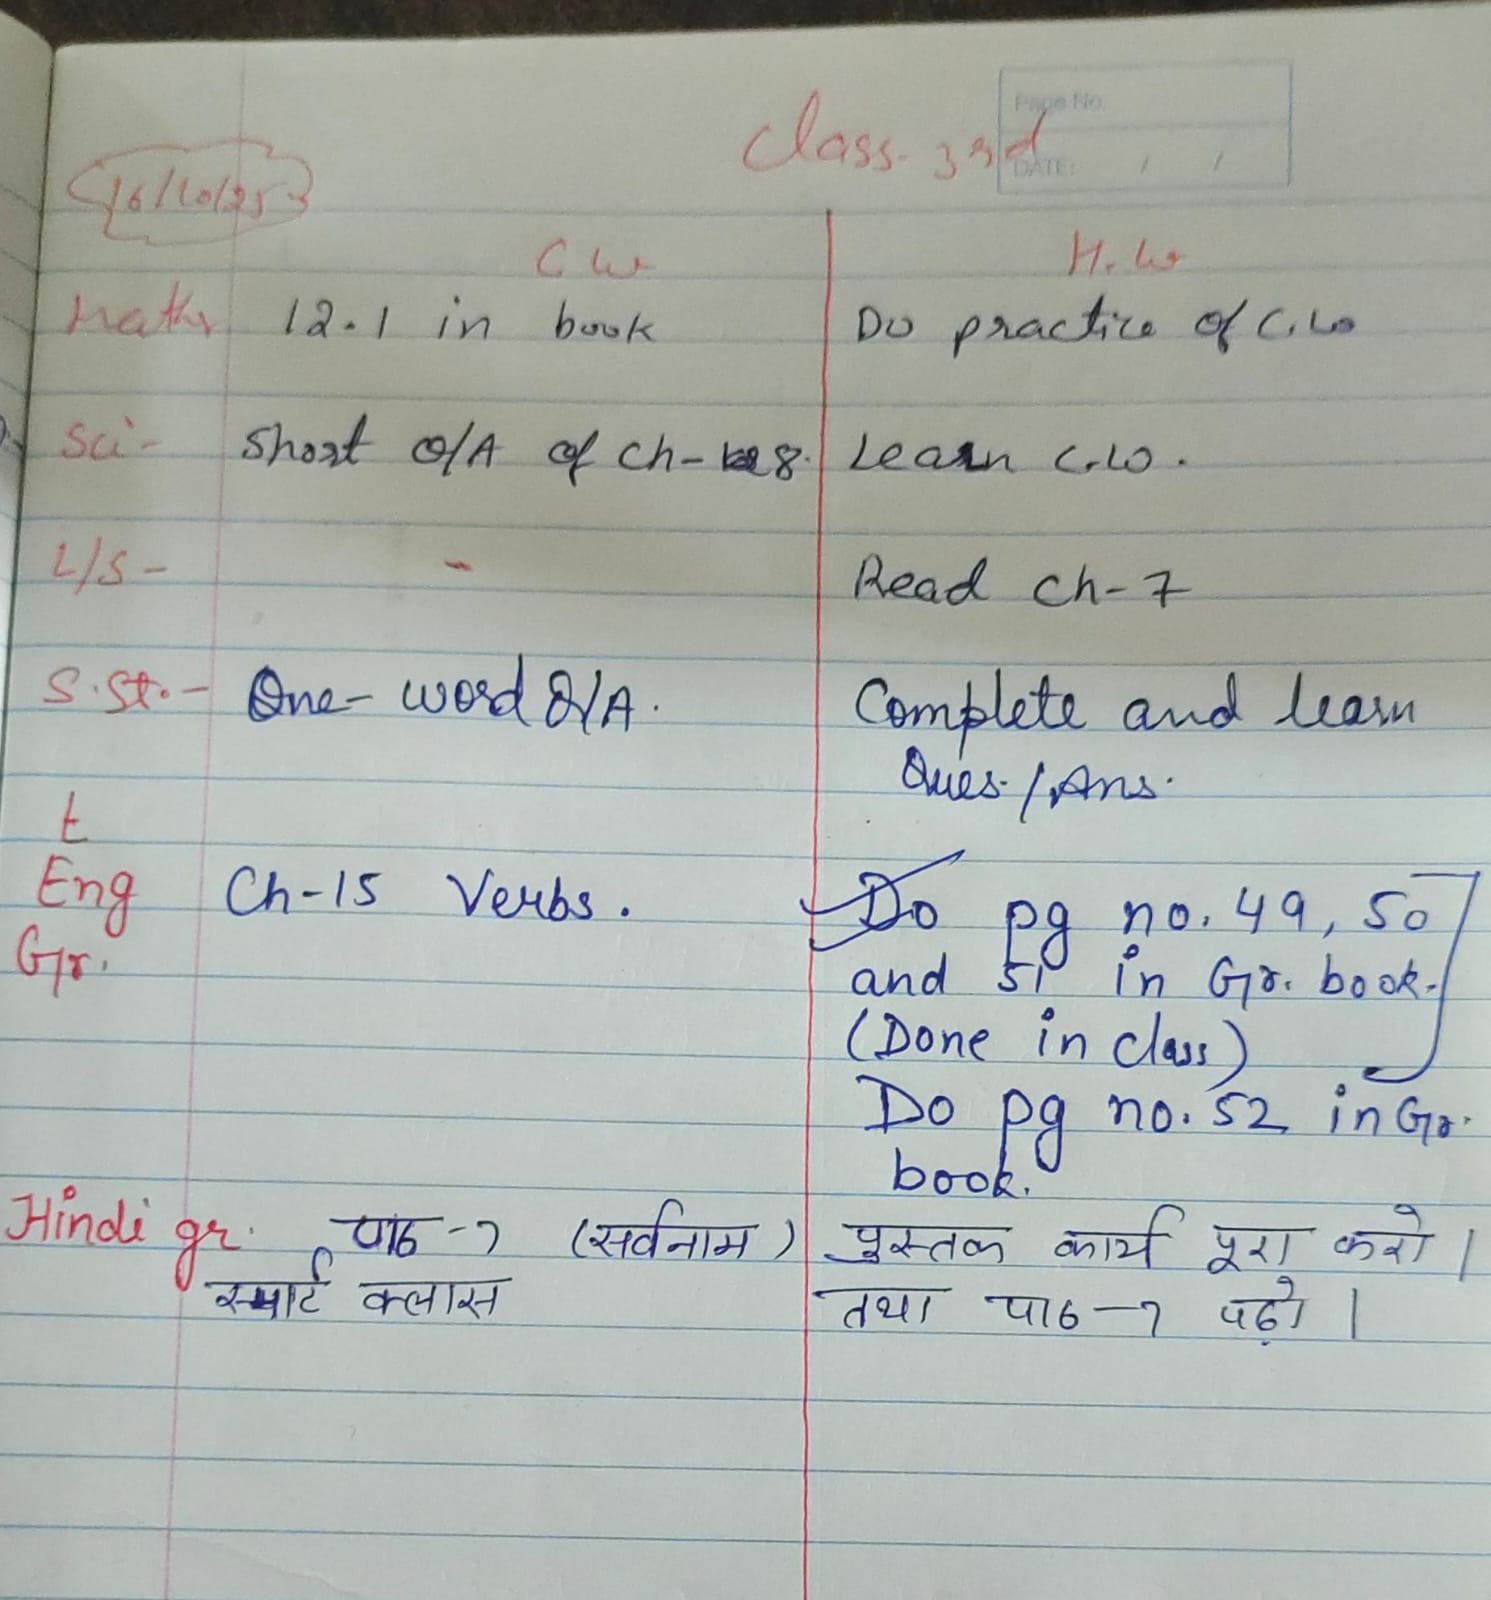 Page No.
Class-3rd
DATE: / /
16/10/25
C W H.W
Maths 12.1 in book Do practice of C.W
Sci- Short Q/A of Ch-8. Learn C.W.
L/S- - Read Ch-7
S.St.- One-word Q/A. Complete and learn
Ques./Ans.
E
Eng Ch-15 Verbs. Do pg no. 49, 50
Gr. and 51 in Gr. book.
(Done in class)
Do pg no. 52 in Gr.
book.
Hindi gr. पाठ-7 (सर्वनाम) पुस्तक कार्य पूरा करो।
स्मार्ट क्लास तथा पाठ-7 पढ़ो।